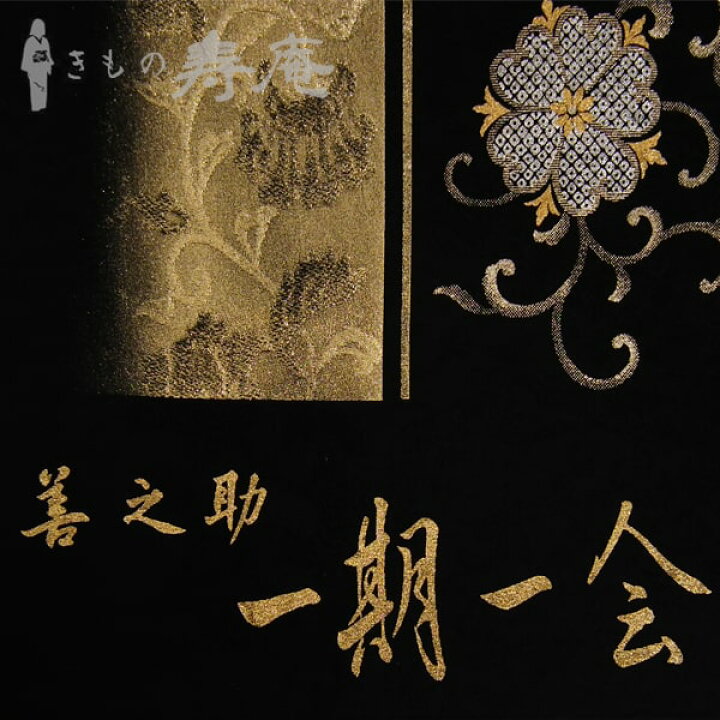 きもの寿庵
善之助
一期一会